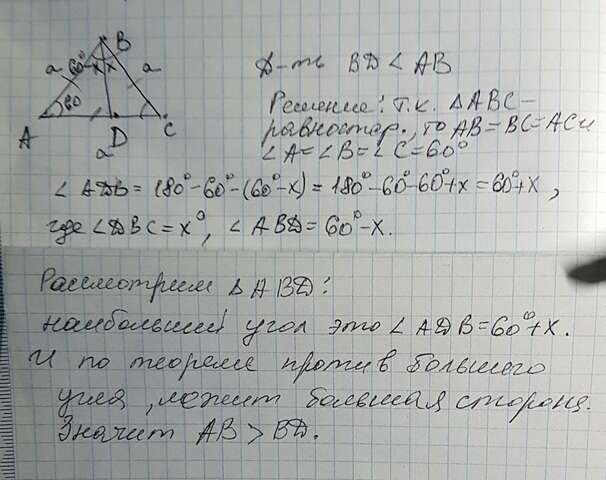 B
a 60°-x x a
60
A D C
a
Д-ть BD < AB
Решение: т.к. △ABC –
равностор., то AB = BC = AC и
∠A = ∠B = ∠C = 60°
∠ADB = 180° - 60° - (60° - x) = 180° - 60° - 60° + x = 60° + x,
где ∠DBC = x°, ∠ABD = 60° - x.
Рассмотрим △ABD:
наибольший угол это ∠ADB = 60° + x.
И по теореме против большего
угла, лежит большая сторона.
Значит AB > BD.